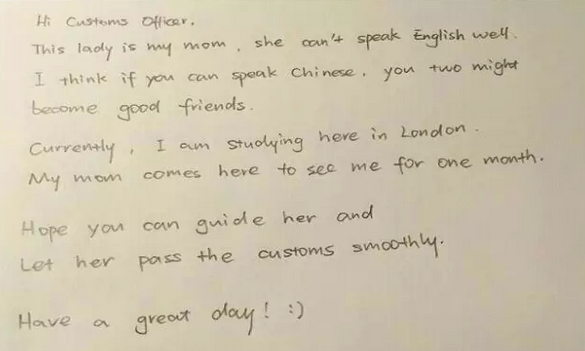 Hi Customs Officer.
This lady is my mom, she can't speak English well.
I think if you can speak Chinese, you two might
become good friends.
Currently, I am studying here in London.
My mom comes here to see me for one month.
Hope you can guide her and
Let her pass the customs smoothly.
Have a great day! :)